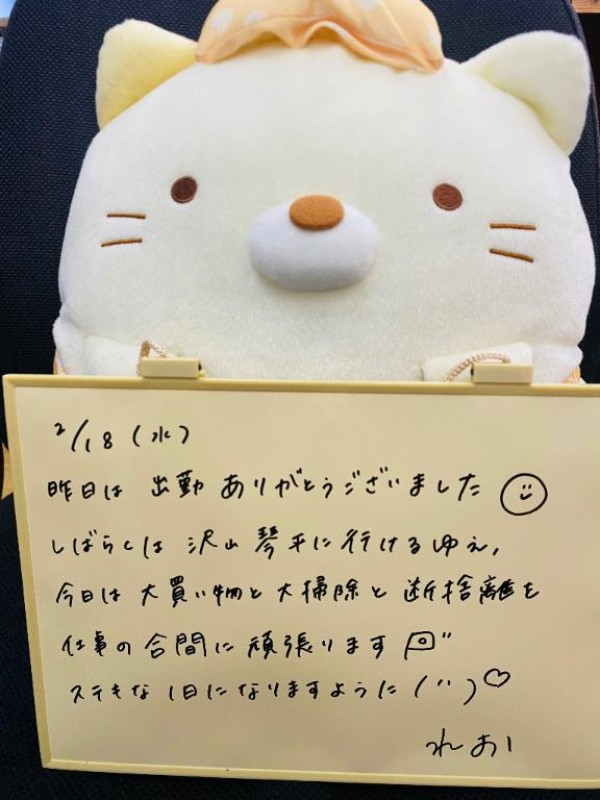 2/18(水)
昨日は出勤ありがとうございました
しばらくは沢山琴平に行けるゆえ、
今日は大買い物と大掃除と断捨離を
仕事の合間に頑張ります
ステキな1日になりますように(¨)♡
れおい